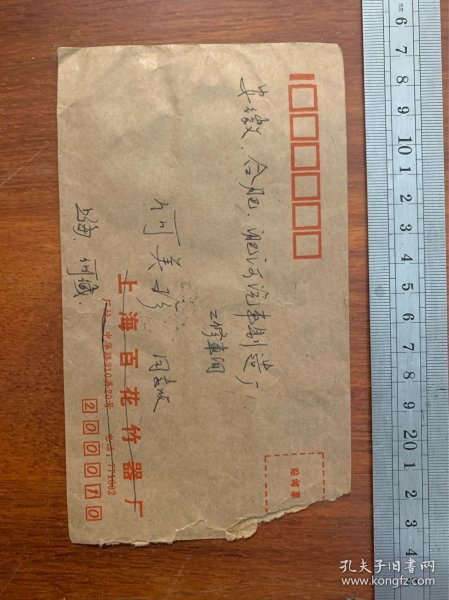 安徽、合肥、淝河汽车制造厂
工修车间
何美珍 同志收
上海 何缄
上海百花竹器厂
电话：774002
200010
贴邮票
孔夫子旧书网
www.kongfz.com
6 7 8 9 10 1 2 3 4 5 6 7 8 9 20 1 2 3 4